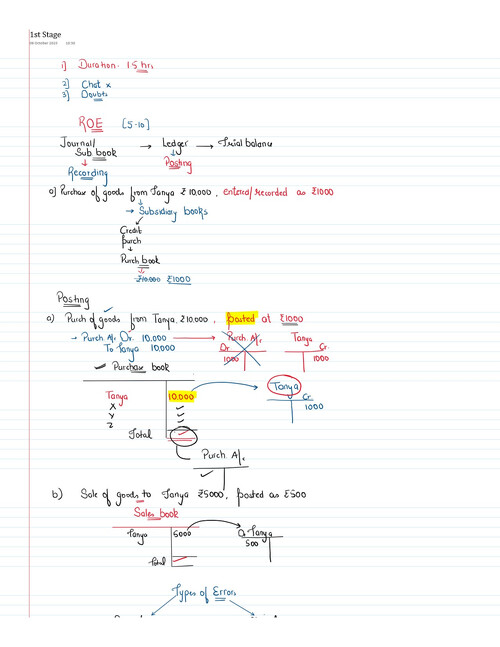 1st Stage
08 October 2023 10:36
1] Duration. 1.5 hrs
2] Chat x
3] Doubts
ROE [5-10]
Journal/ → Ledger → Trial balance
Sub book
Posting
Recording
a) Purchase of goods from Tanya ₹10,000, entered/recorded as ₹1000
→ Subsidiary books
Credit
purch
Purch book
₹10.000 ₹1000
Posting
a) Purch of goods from Tanya ₹10,000, posted at ₹1000
→ Purch. A/c Dr. 10,000 → Purch. A/c Tanya
To Tanya 10,000 Dr Cr.
1000 1000
✓ Purchase book
Tanya 10.000 Tanya
X Cr.
Y 1000
Z
Total
Purch. A/c
b) Sale of goods to Tanya ₹5000, posted as ₹500
Sales book
Tanya 5000 Dr Tanya
500
Total
Types of Errors